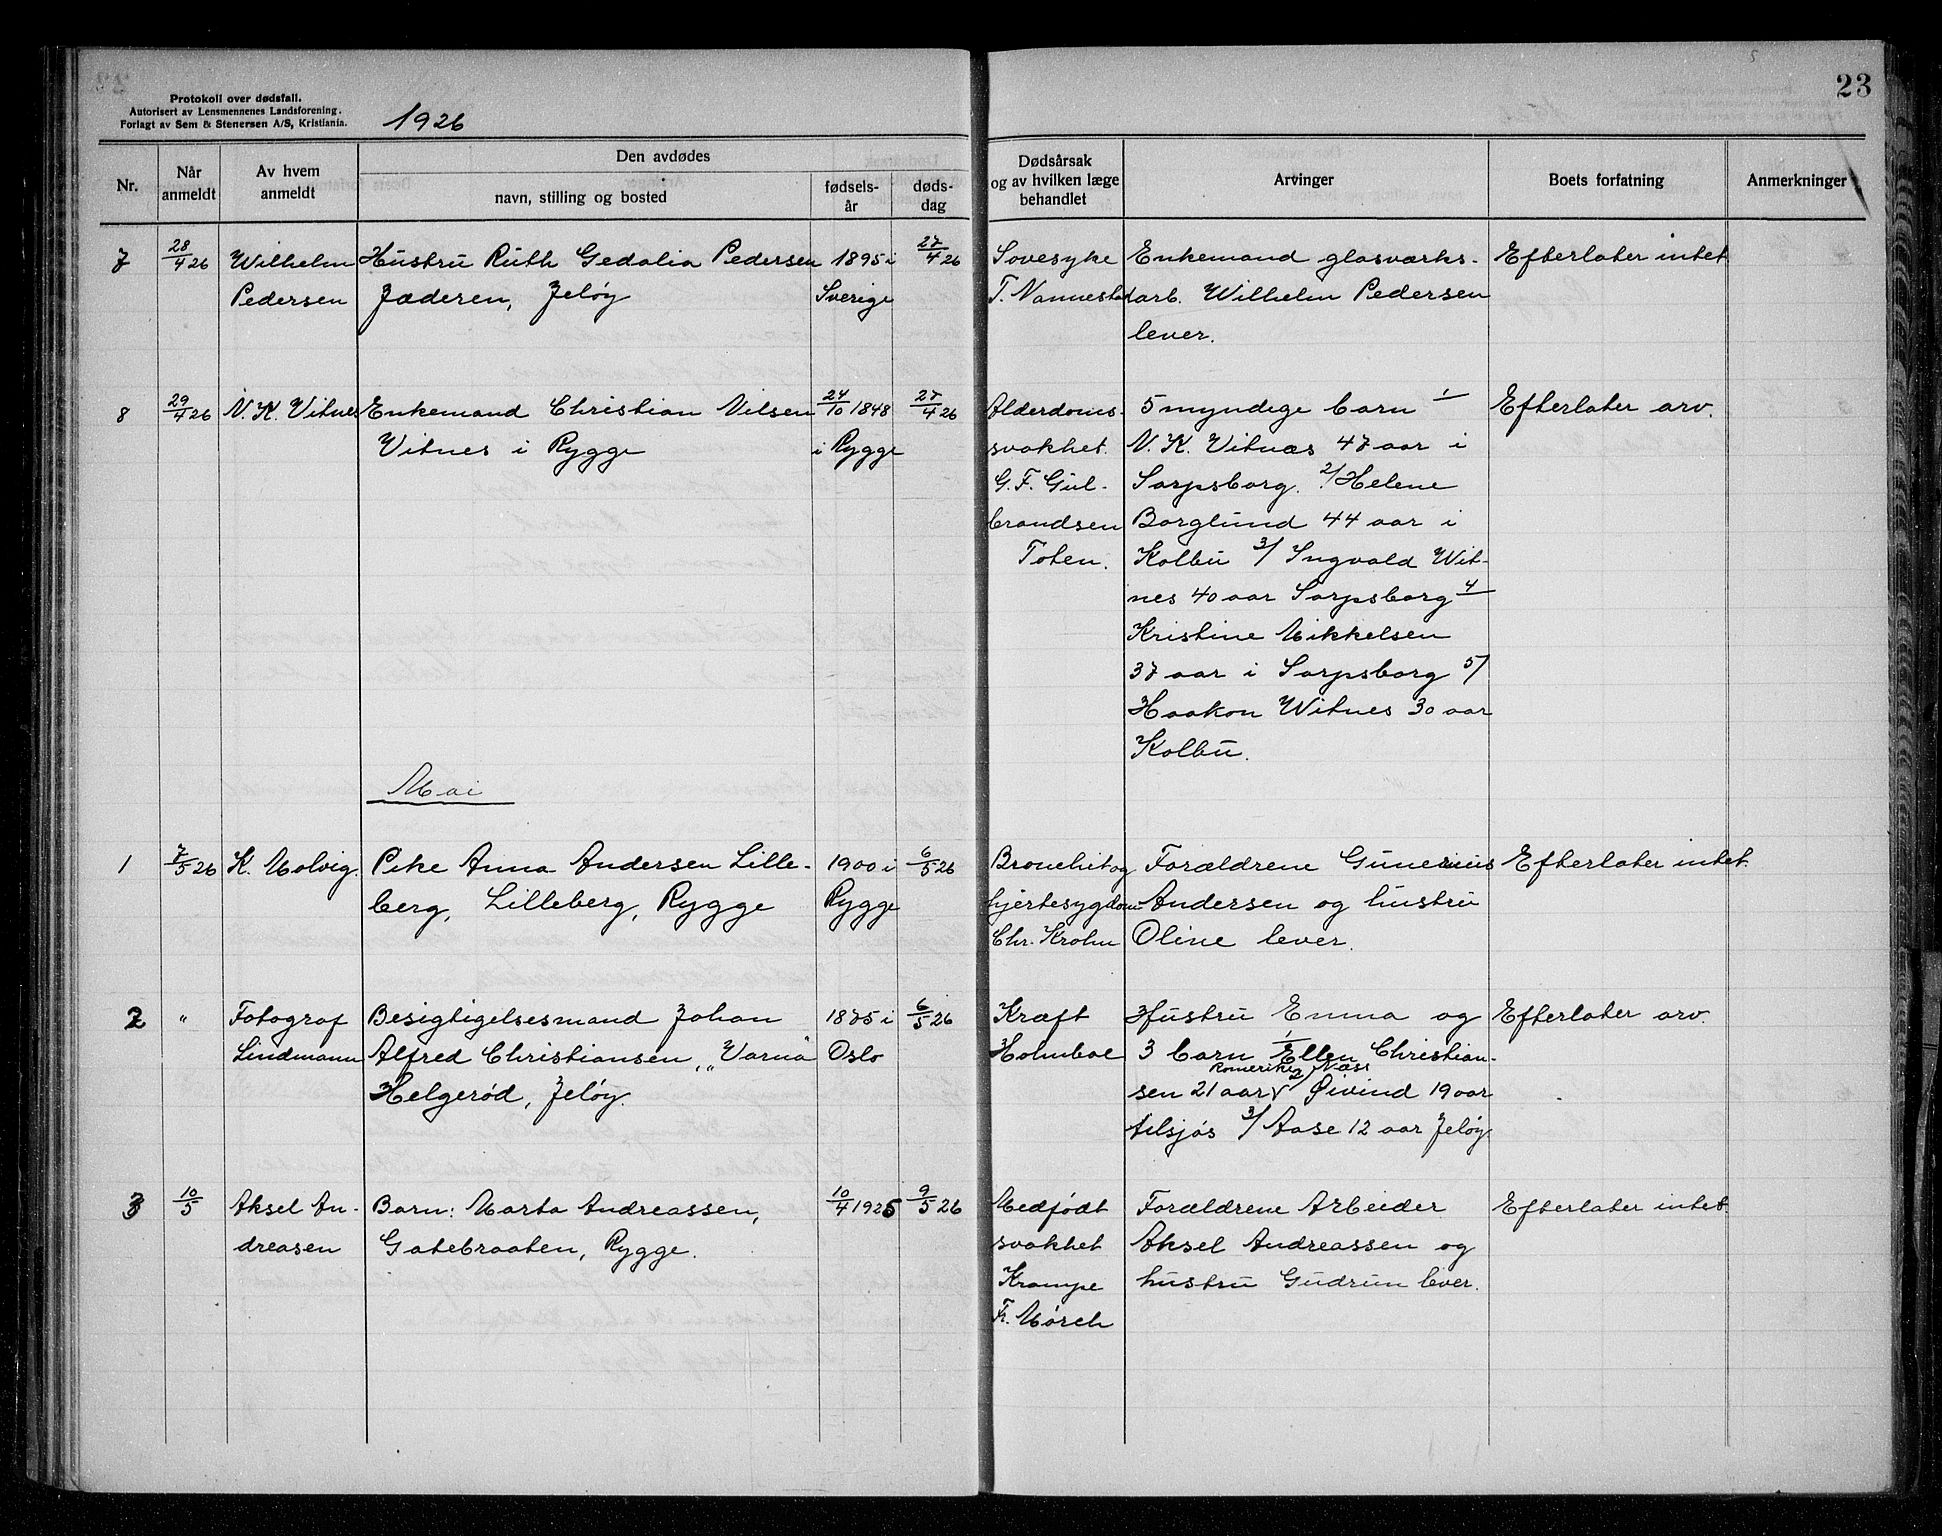 Protokoll over dødsfall.
Autorisert av Lensmennenes Landsforening.
Forlagt av Sem & Stenersen A/S, Kristiania.
1926
23
Nr.
Når anmeldt
Av hvem anmeldt
Den avdødes
navn, stilling og bosted
fødsels-år
døds-dag
Dødsårsak og av hvilken læge behandlet
Arvinger
Boets forfatning
Anmerkninger
7
28/4 26
Wilhelm
Pedersen
Hustru Ruth Gedalia Pedersen
Jæderen, Jeløy
1895 i
Sverige
27/4 26
Sovesyke
T. Nannestad
Enkemand glasværks-
arb. Wilhelm Pedersen
lever.
Efterlater intet
8
29/4 26
N. K. Vitnes
Enkemand Christian Nilsen
Vitnes i Rygge
24/10 1848
i Rygge
27/4 26
Alderdoms-
svakhet.
G. F. Gul-
brandsen
Toten.
5 myndige barn 1/
N. K. Vitnæs 47 aar i
Sarpsborg. 2/ Helene
Borglund 44 aar i
Kolbu 3/ Ingvald Wit-
nes 40 aar Sarpsborg 4/
Kristine Mikkelsen
37 aar i Sarpsborg 5/
Haakon Witnes 30 aar
Kolbu.
Efterlater arv.
Mai
1
7/5 26
K. Molvig.
Pike Anna Andersen Lille-
berg, Lilleberg, Rygge
1900 i
Rygge
6/5 26
Bronchit og
hjertesygdom
Chr. Krohn
Forældrene Gunerius
Andersen og hustru
Oline lever.
Efterlater intet.
2
"
Fotograf
Lindmann
Besigtigelsesmand Johan
Alfred Christiansen, "Varna"
Helgerød, Jeløy.
1875 i
Oslo
6/5 26
Kræft
Holmboe
Hustru Emma og
3 barn 1/ Ellen Christian-
Romerike, Næs
sen 21 aar √ 2/ Øivind 19 aar
tilsjøs 3/ Aase 12 aar Jeløy.
Efterlater arv.
3
10/5
Aksel An-
dreasen
Barn: Marta Andreassen,
Gatebraaten, Rygge.
10/4 1926
9/5 26
Medfødt
svakhet
Krampe
Fr. Mørch
Forældrene Arbeider
Aksel Andreassen og
hustru Gudrun lever.
Efterlater intet.